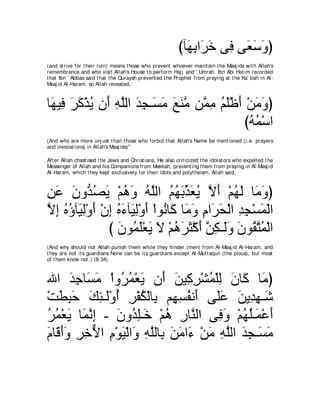 (وَسَعَى فِى خَرَابِهَآ)
(and strive for their ruin) means those who prevent whoever maintain the Masjids with Allah's
remembrance and who visit Allah's House to perform Hajj and `Umrah. Ibn Abi Hatim recorded
that Ibn `Abbas said that the Quraysh prevented the Prophet from praying at the Ka`bah in Al-
Masjid Al-Haram, so Allah revealed,
(وَمَنْ أَظْلَمُ مِمَّن مَّنَعَ مَسَـجِدَ اللَّهِ أَن يُذْكَرَ فِيهَا
اسْمُهُ)
(And who are more unjust than those who forbid that Allah's Name be mentioned (i.e. prayers
and invocations) in Allah's Masjids)''
After Allah chastised the Jews and Christians, He also criticized the idolators who expelled the
Messenger of Allah and his Companions from Makkah, preventing them from praying in Al-Masjid
Al-Haram, which they kept exclusively for their idols and polytheism. Allah said,
(وَمَا لَهُمْ أَلاَّ يُعَذِّبَهُمُ اللَّهُ وَهُمْ يَصُدُّونَ عَنِ
الْمَسْجِدِ الْحَرَامِ وَمَا كَانُواْ أَوْلِيَآءَهُ إِنْ أَوْلِيَآؤُهُ إِلاَّ
الْمُتَّقُونَ وَلَـكِنَّ أَكْثَرَهُمْ لاَ يَعْلَمُونَ )
(And why should not Allah punish them while they hinder (men) from Al-Masjid Al-Haram, and
they are not its guardians None can be its guardians except Al-Muttaqun (the pious), but most
of them know not.) (8:34)
(مَا كَانَ لِلْمُشْرِكِينَ أَن يَعْمُرُواْ مَسَاجِدَ الله
شَـهِدِينَ عَلَى أَنفُسِهِم بِالْكُفْرِ أُوْلَـئِكَ حَبِطَتْ
أَعْمَـلُهُمْ وَفِى النَّارِ هُمْ خَـلِدُونَ - إِنَّمَا يَعْمُرُ
مَسَـجِدَ اللَّهِ مَنْ ءَامَنَ بِاللَّهِ وَالْيَوْمِ الاٌّخِرِ وَأَقَامَ